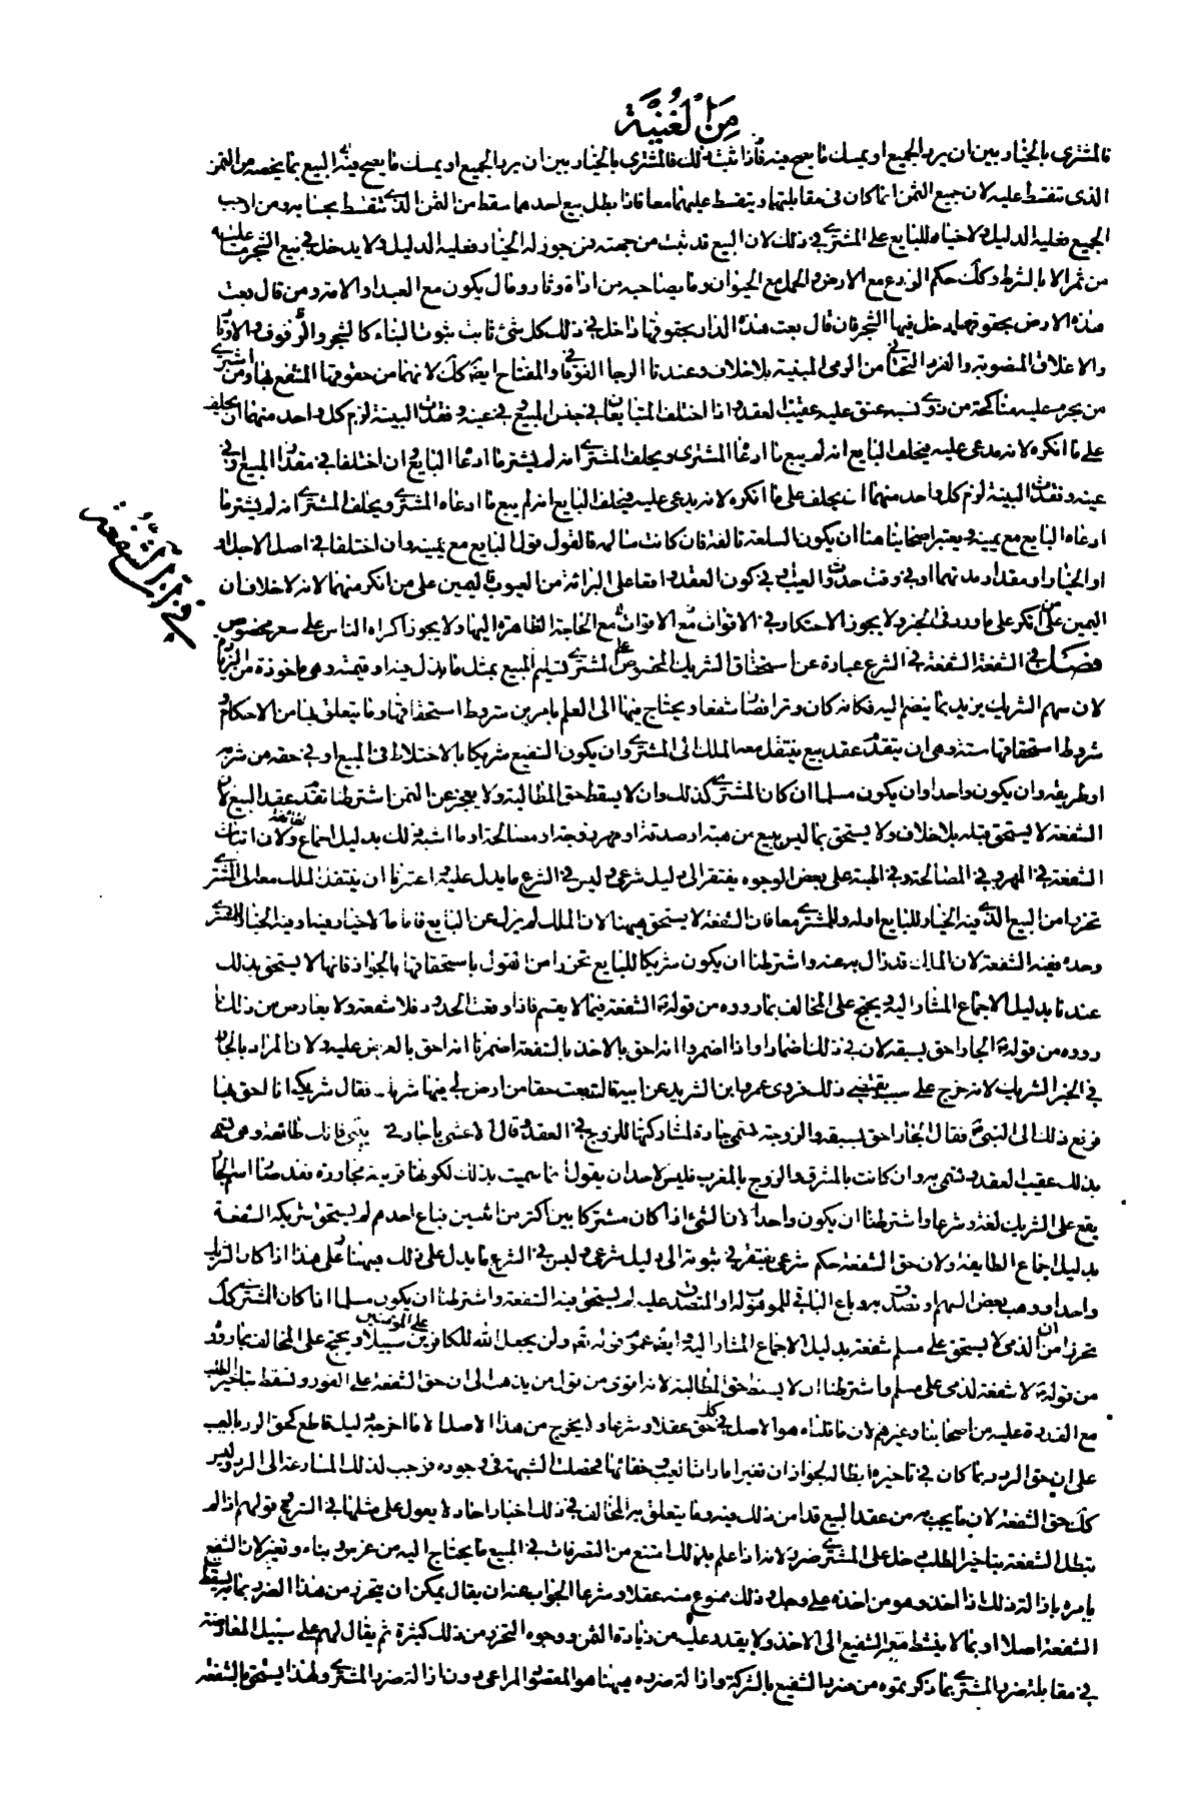 مِنَ الغُنيَة
فالمشترى بالخيار بين ان يرد الجميع او يمسك ما يصح فيه فاذا ثبت ذلك فالمشترى بالخيار بين ان يرد الجميع او يمسك ما يصح فيه البيع بما يخصه من الثمن
الذى يتقسط عليه لان جميع الثمن انما كان فى مقابلتهما ويتقسط عليهما معا فاذا بطل بيع احدهما سقط من الثمن الذى يتقسط بحسابه ومن اوجب
الجميع فعليه الدليل ولا خيار للبايع على المشترى فى ذلك لان البيع قد ثبت من جهته فمن جوز له الخيار فعليه الدليل ولا يدخل فى بيع الشجر ما عليه
من ثمر الا بالشرط وكك حكم الزرع مع الارض والحمل مع الحيوان وما يصاحبه من اداة وثار ومال يكون مع العبد او الامة ومن قال بعت
هذه الارض بحقوقها دخل فيها الشجر فان قال بعت هذه الدار بحقوقها داخل فى ذلك كل شئ ثابت ثبوت البناء كالشجر والرفوف والاوتاد
والاغلاق المنصوبة والغرد التحتانى من الرحى المبنية بلا خلاف وعندنا الرحا الفوقانى والمفتاح ايضا كك لانهما من حقوقها المنتفع بها ومن اشترى
من يحرم عليه مناكحته من ذوى نسبه عتق عليه عقيب العقد واذا اختلف المتبايعان فى جنس المبيع او فى عينه وفقدت البينة لزم كل واحد منهما ان يحلف
على ما انكره لانه مدعى عليه فيحلف البايع انه لم يبع ما ادعاه المشترى ويحلف المشترى انه لم يشتر ما ادعاه البايع وان اختلفا فى مقدار المبيع او فى
عينه وفقدت البينة لزم كل واحد منهما ان يحلف على ما انكره لانه مدعى عليه فيحلف البايع انه لم يبع ما ادعاه المشترى ويحلف المشترى انه لم يشتر ما
ادعاه البايع مع يمينه ويعتبر اصحابنا هنا ان يكون السلعة تالفة فان كانت سالمة فالقول قول البايع مع يمينه وان اختلفا فى اصل الاجل او
او الخيار او مقدار مدتهما او فى وقت حدث العيب او فى كون العقد واقعا على البرائة من العيوب فاليمين على من انكر منهما لانه لا خلاف ان
اليمين على من انكر على ما ورد فى الخبر ولا يجوز الاحتكار فى الاقوات مع الحاجة الظاهرة اليها ولا يجوز اكراه الناس على سعر مخصوص
فصل فى الشفعة الشفعة فى الشرع عبارة عن استحقاق الشريك المخصوص على المشترى تسليم المبيع بمثل ما بذل فيه او قيمته وهى ماخوذة من الزيادة
لان سهم الشريك يزيد بما ينضم اليه فكانه كان وترا فصار شفعا ويحتاج فيها الى العلم بامرين شروط استحقاقها وما يتعلق بها من الاحكام
شروط استحقاقها ستة وهى ان يتقدم عقد بيع ينتقل معه الملك الى المشترى وان يكون الشفيع شريكا بالاختلاط فى المبيع او فى حقه من شربه
او طريقه وان يكون واحدا وان يكون مسلما ان كان المشترى كذلك وان لا يسقط حق المطالبة ولا يعجز عن الثمن اشترطنا تقدم عقد البيع لان
الشفعة لا يستحق قبله بلا خلاف ولا يستحق بما ليس ببيع من هبة او صدقة او مهر زوجة او مصالحة او ما اشبه ذلك بدليل اجماع الطائفة ولان اثبات
الشفعة فى المهر وفى المصالحة وفى الهبة على بعض الوجوه يفتقر الى دليل شرعى وليس فى الشرع ما يدل عليه واعتبرنا ان ينتقل الملك معه الى المشترى
تحرزا من البيع الذى فيه الخيار للبايع او له وللمشترى معا فان الشفعة لا يستحق هيهنا لان الملك لم يزل عن البايع فاما ما لا خيار فيه او فيه الخيار للمشترى
وحده ففيه الشفعة لان الملك قد زال به عنه واشترطنا ان يكون شريكا للبايع تحرزا من القول باستحقاقها بالجوار فانها لا يستحق بذلك
عندنا بدليل الاجماع المشار اليه ويحتج على المخالف بما رووه من قوله ع الشفعة فيما لا يقسم فاذا وقعت الحدود فلا شفعة ولا يعارض من ذلك بما
رووه من قوله ع الجار احق بسقبه لان فى ذلك اضمارا واذا اضمروا انه احق بالاخذ بالشفعة اضمرنا انه احق بالعرض عليه ولان المراد بالجار
فى الخبر الشريك لانه خرج على سبب يقتضى ذلك فروى عمرو بن الشريد عن ابيه قال بعت حقا من ارض لى فيها شريك فقال شريكى انا احق بها
فرفع ذلك الى النبى ص فقال الجار احق بسبقه والزوجة تسمى جارة لمشاركتها للزوج فى العقد قال الاعشى ايا جارتى بينى فانك طالقة وهى تسمى
بذلك عقيب العقد وتسمى به وان كانت بالمشرق والزوج بالمغرب فليس لاحد ان يقول انما سميت بذلك لكونها قريبة مجاورة فقد صار اسم الجار
يقع على الشريك لغة وشرعا واشترطنا ان يكون واحدا لان الشئ اذا كان مشتركا بين اكثر من اثنين فباع احدهم لم يستحق شريكه الشفعة
بدليل اجماع الطايفة ولان حق الشفعة حكم شرعى يفتقر فى ثبوته الى دليل شرعى وليس فى الشرع ما يدل على ذلك هيهنا وعلى هذا اذا كان الشريك
واحدا ووهب بعض السهم او تصدق به وباع الباقى للموهوب له او المتصدق عليه لم يستحق فيه الشفعة واشترطنا ان يكون مسلما اذا كان المشترى كك
تحرزا من ان الذمى لا يستحق على مسلم شفعة بدليل الاجماع المشار اليه وايضا عموم قوله تعم ولن يجعل الله للكافرين على المؤمنين سبيلا ويحتج على المخالف بما رووه
من قوله ع لا شفعة لذمى على مسلم واشترطنا ان لا يسقط حق المطالبة لانه اقوى من قول من يذهب الى ان حق الشفعة على الفور ويسقط بتاخير الطلب
مع القدرة عليه من اصحابنا وغيرهم لان ما قلناه هو الاصل فى كل حق عقلا وشرعا ولا يخرج من هذا الاصل الا ما اخرجه دليل قاطع كحق الرد بالعيب
على ان حق الرد به لما كان فى تاخيره ابطاله لجواز ان تغير امارات العيب وخفائها فحصلت الشبهة فى وجوده وجب لذلك المسارعة الى الرد وليس
كك حق الشفعة لان ما يجب به من عقد البيع قد امن ذلك فيه وما يتعلق به المخالف فى ذلك اخبار احاد لا يعول على مثلها فى الشرع وقولهم اذا لم
يبطل الشفعة بتاخير الطلب دخل على المشترى ضرر لانه اذا علم بذلك امتنع من التصرفات فى المبيع ما يحتاج اليه من غرس وبناء وتغير لان الشفيع
يامره بازالة ذلك اذا اخذ وهو من اخذه على وجل وذلك ممنوع منه عقلا وشرعا الجواب عنه ان يقال يمكن ان يتحرز من هذا الضرر بما يسقط
الشفعة اصلا او بما لا ينشط معه الشفيع الى الاخذ ولا يقدر عليه من زيادة الثمن ووجوه التحرز من ذلك كثيرة ثم يقال لهم على سبيل المعارضة
فى مقابلة ضرر المشترى بما ذكرتموه من ضرر الشفيع بالشركة وازالة ضرره هيهنا هو المقصود المراعى دون ازالة ضرر المشترى ولهذا يستحق بالشفعة
فى شرائط الشفعة